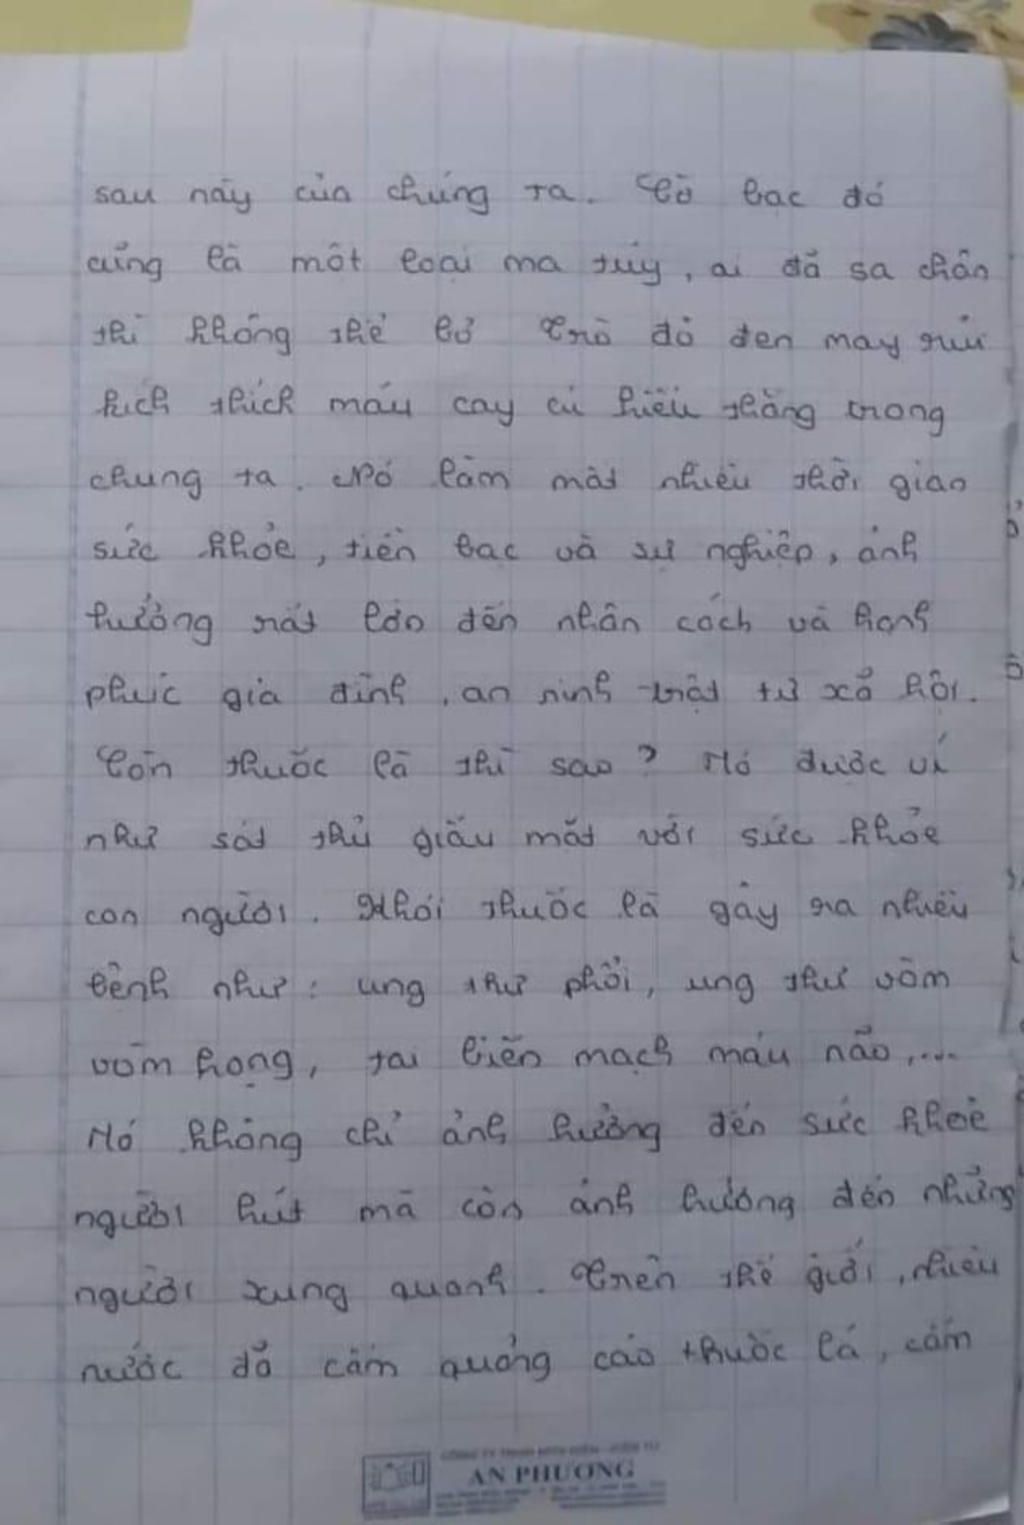 sau này của chúng ta. Cờ bạc đó
cũng là một loại ma túy, ai đã sa chân
thì không thể bỏ Trò đỏ đen may rủi
kích thích máu cay cú hiếu thắng trong
chung ta. Nó làm mất nhiều thời gian
sức khỏe, tiền bạc và sự nghiệp, ảnh
hưởng rất lớn đến nhân cách và hạnh
phúc gia đình, an ninh trật tự xã hội.
Còn thuốc lá thì sao? Nó được ví
như sát thủ giấu mặt với sức khỏe
con người. Khói thuốc lá gây ra nhiều
bệnh như: ung thư phổi, ung thư vòm
vòm họng, tai biến mạch máu não,...
Nó không chỉ ảnh hưởng đến sức khoẻ
người hút mà còn ảnh hưởng đến những
người xung quanh. Trên thế giới, nhiều
nước đã cấm quảng cáo thuốc lá, cấm
AN PHUONG